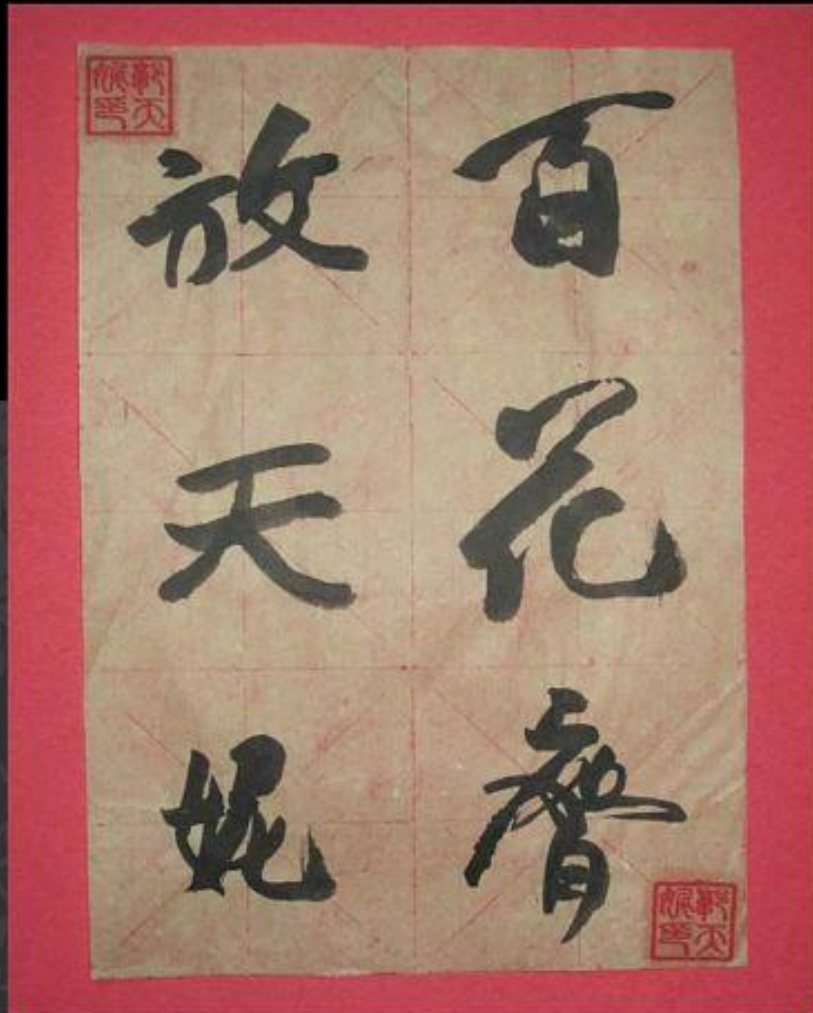 百花齊
放天妮